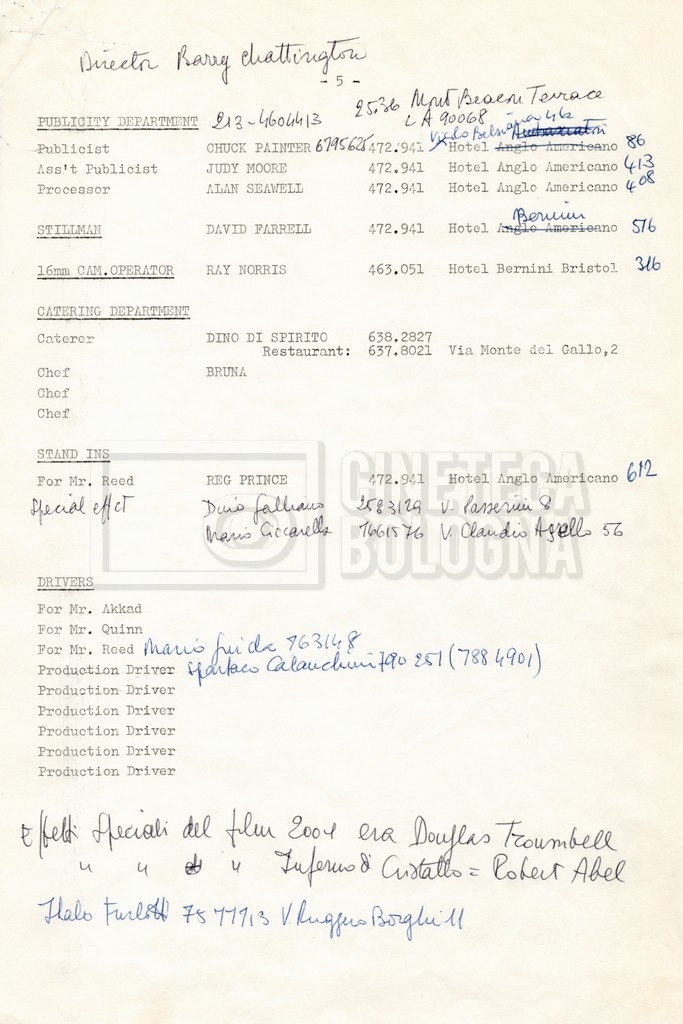 Director Barry Chattington
- 5 -
2536 Mont Beacon Terrace
LA 90068
PUBLICITY DEPARTMENT 213-4604413
Publicist CHUCK PAINTER 6795625 472.941 Hotel Anglo Americano 86
Ass't Publicist JUDY MOORE 472.941 Hotel Anglo Americano 413
Processor ALAN SEAWELL 472.941 Hotel Anglo Americano 408
Bernini
STILLMAN DAVID FARRELL 472.941 Hotel Anglo Americano 516
16mm CAM.OPERATOR RAY NORRIS 463.051 Hotel Bernini Bristol 316
CATERING DEPARTMENT
Caterer DINO DI SPIRITO 638.2827
Restaurant: 637.8021 Via Monte del Gallo,2
Chef BRUNA
Chef
Chef
STAND INS
For Mr. Reed REG PRINCE 472.941 Hotel Anglo Americano 612
Special effct Dino Galliano 2583129 V. Passerini 8
Mario Ciccarella 7661576 V. Claudio Asello 56
CINETECA
BOLOGNA
DRIVERS
For Mr. Akkad
For Mr. Quinn
For Mr. Reed Mario Guida 763148
Production Driver Spartaco Calanchini 790 251 (788 4901)
Production Driver
Production Driver
Production Driver
Production Driver
Production Driver
Effetti Speciali del film 2001 era Douglas Troumbell
" " " Inferno di Cristallo = Robert Abel
Italo Furlotti V. Ruggero Borghi 11